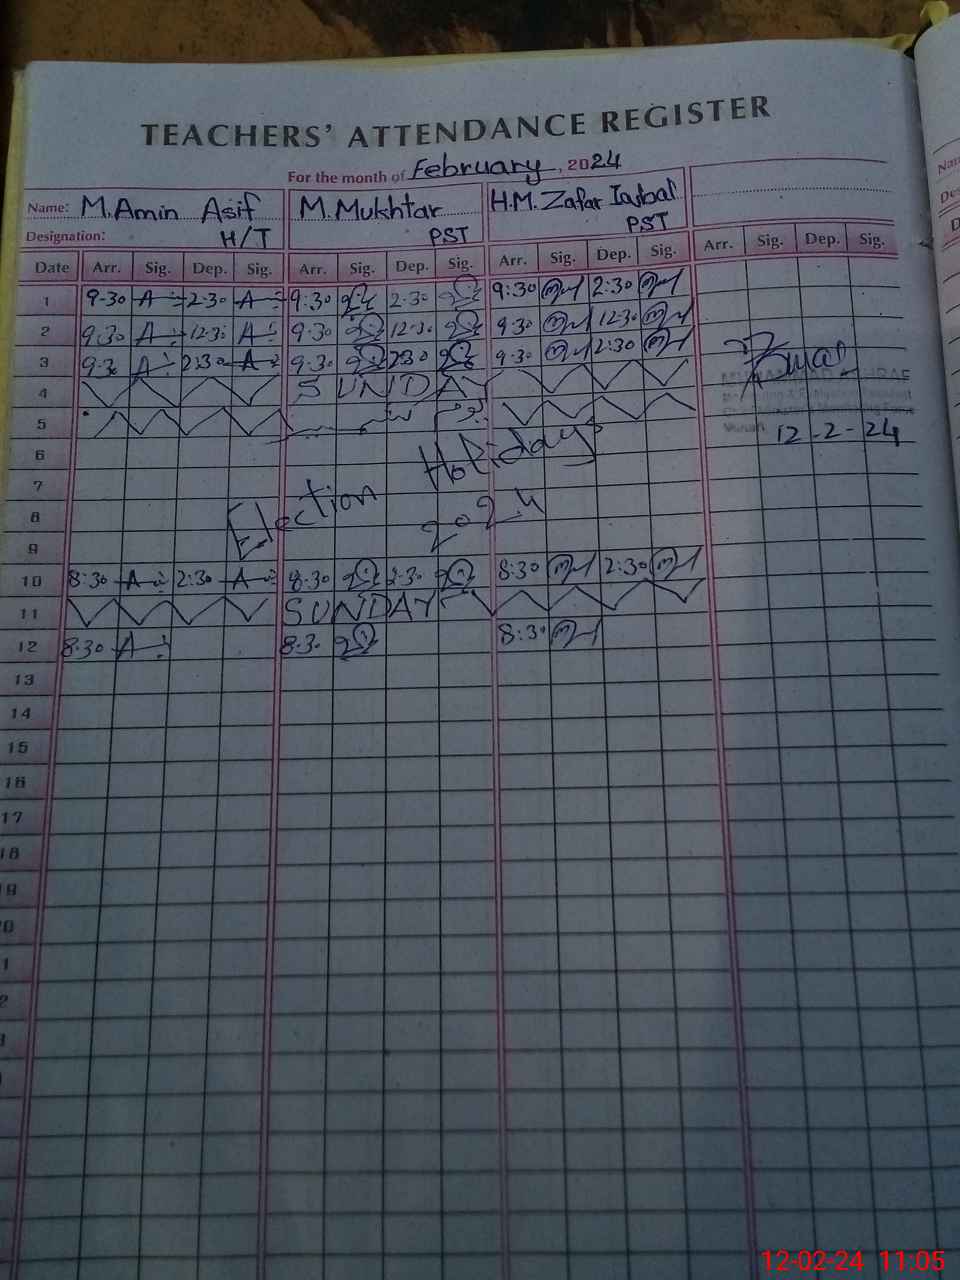 TEACHERS' ATTENDANCE REGISTER
For the month of February, 2024
Name: M.Amin Asif M.Mukhtar H.M. Zafar Iqbal
Designation: H/T PST PST
Date Arr. Sig. Dep. Sig. Arr. Sig. Dep. Sig. Arr. Sig. Dep. Sig. Arr. Sig. Dep. Sig.
1 9-30 A 2-30 A 9:30 2-30 9:30 2:30
2 9:30 A 12:30 A 9:30 12-30 9:30 12:30
3 9:30 A 2:30 A 9:30 2:30 9:30 2:30
4 SUNDAY
5
6 Election Holidays
7
8 2024
9
10 8:30 A 2:30 A 8:30 2:30 8:30 2:30
11 SUNDAY
12 8:30 A 8:30 8:30
13
14
15
16
17
18
19
12-2-24
12-02-24 11:05